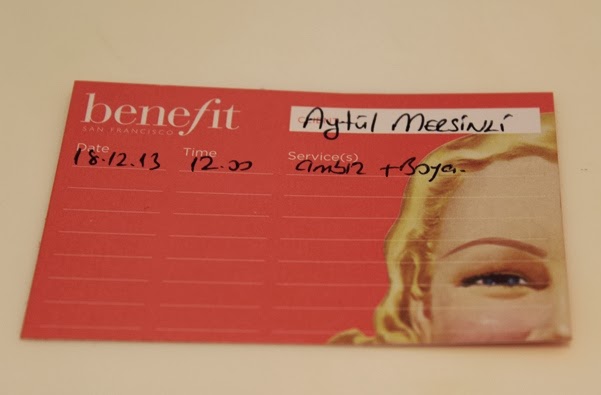 benefit
SAN FRANCISCO
Aytül MERSİNLİ
Date Time Service(s)
18.12.13 12.00 cımbız + Boya.